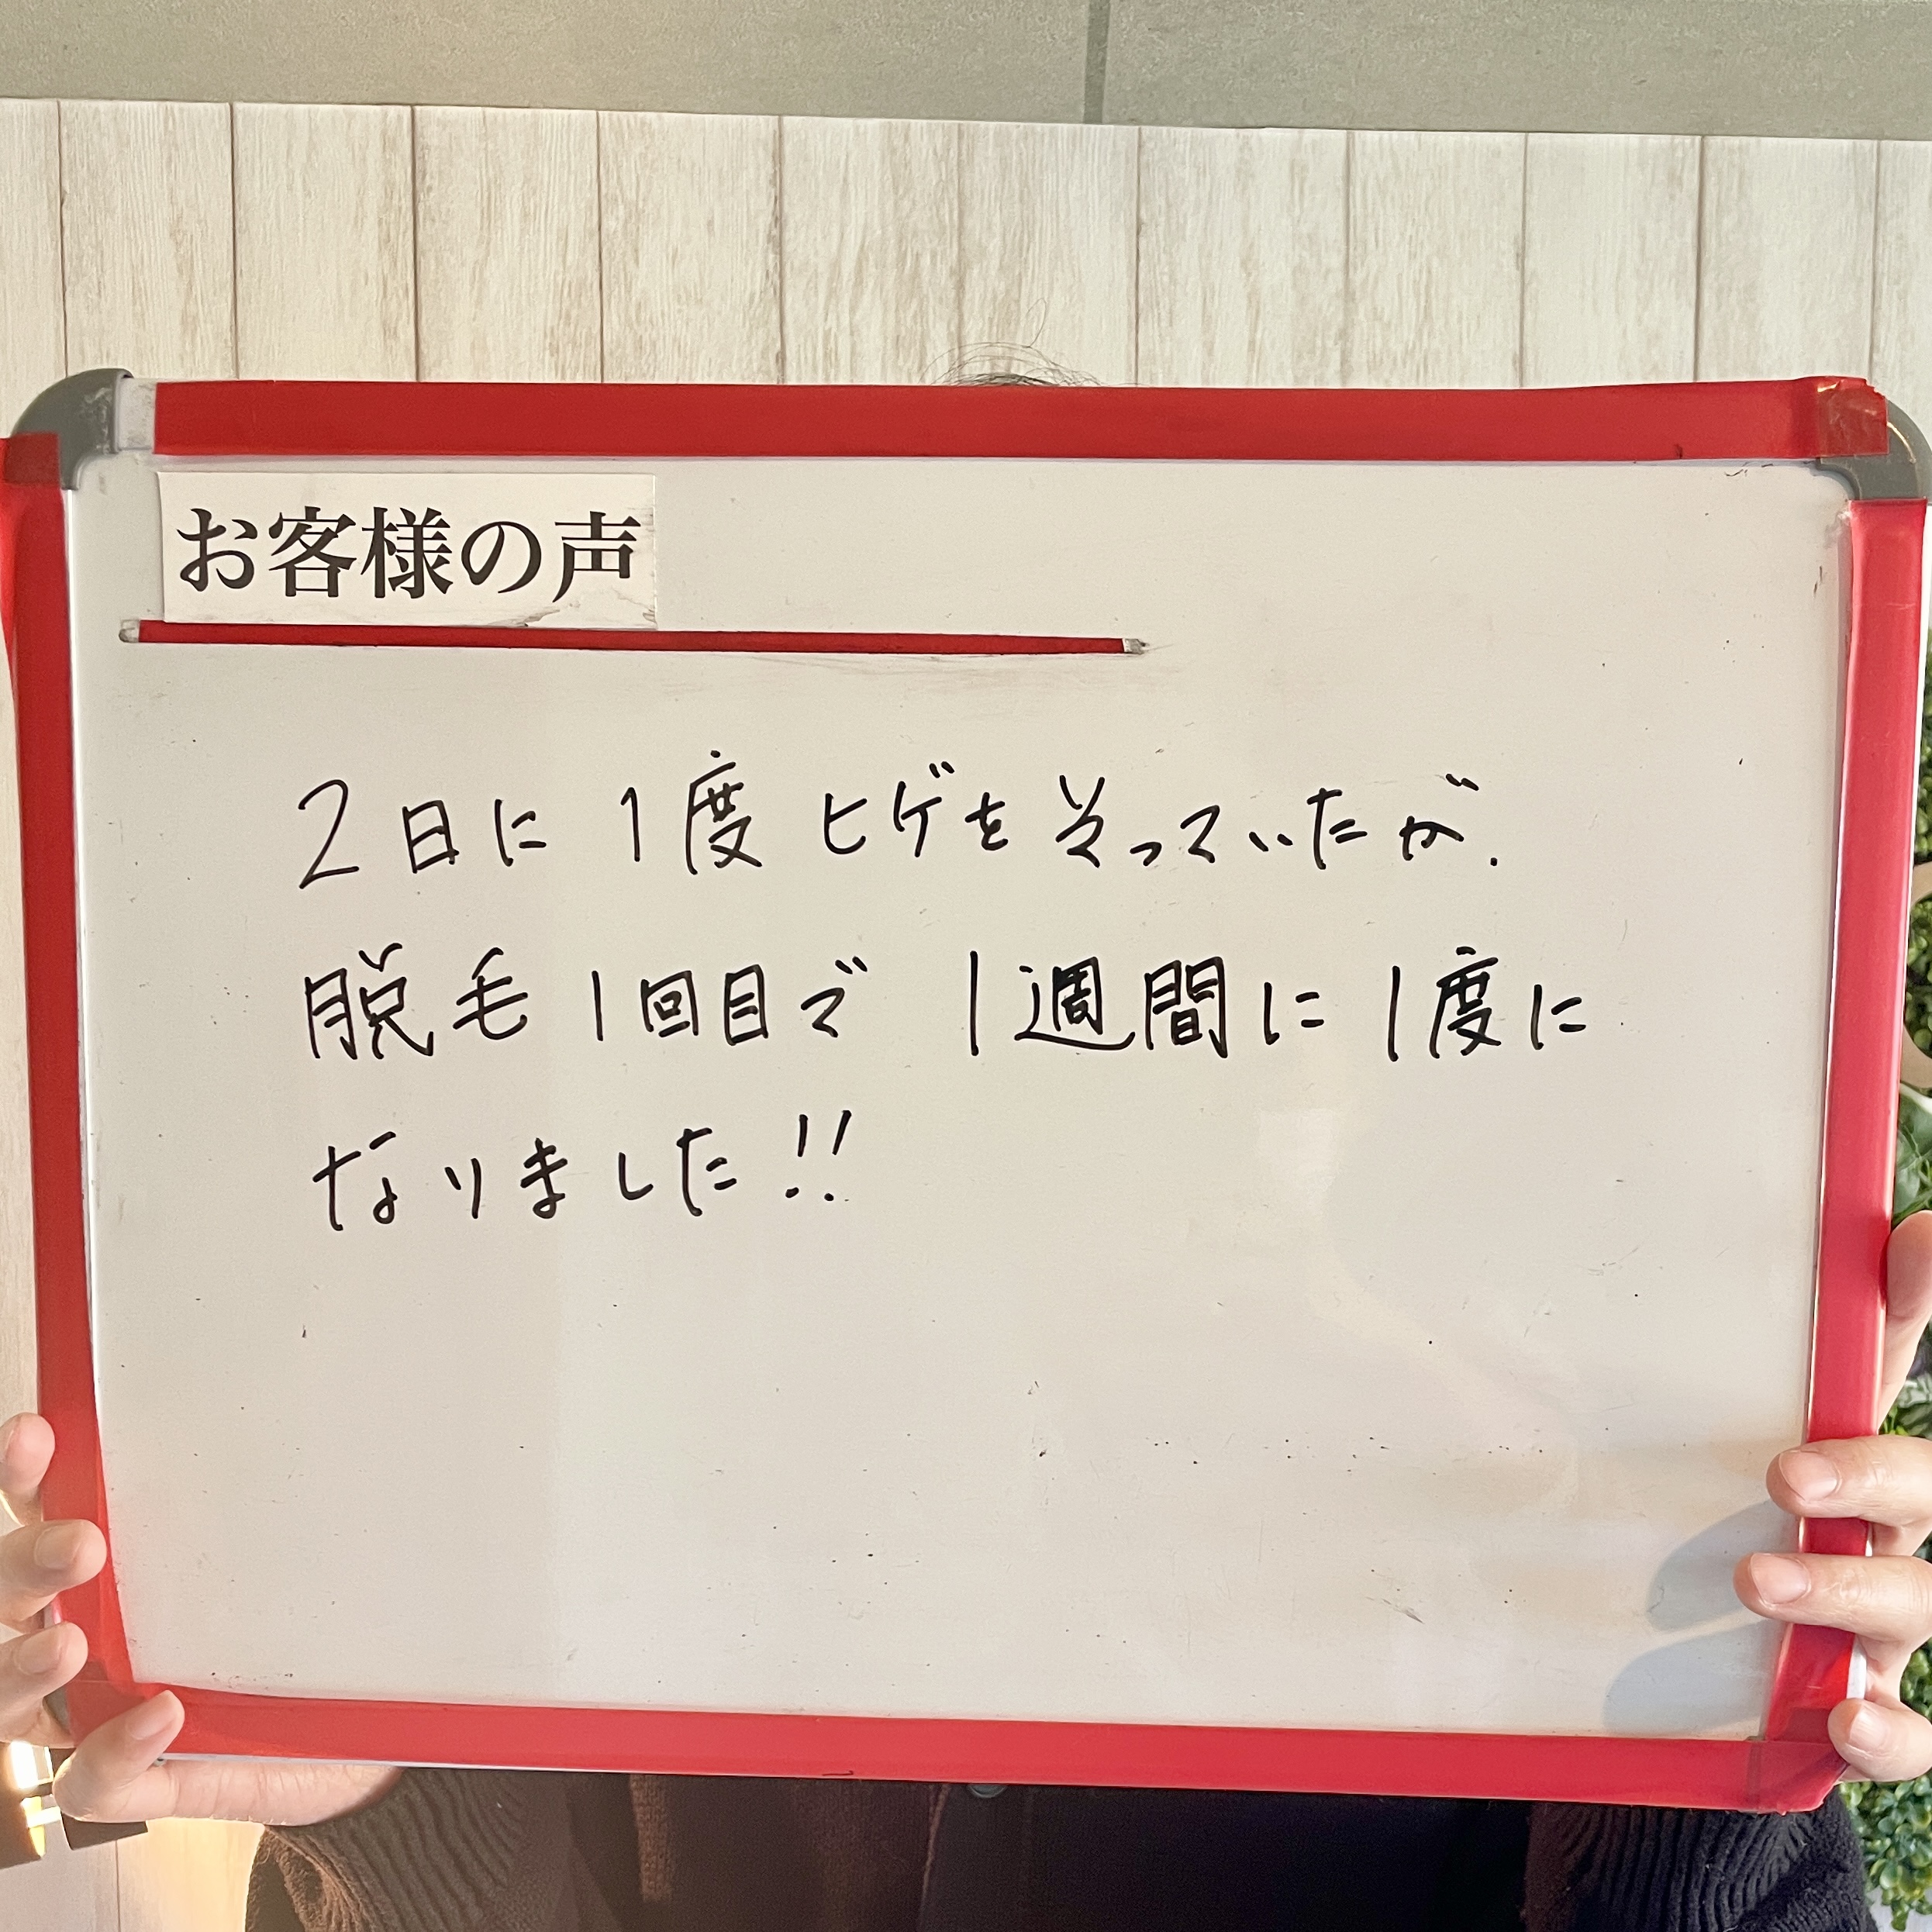 お客様の声
2日に1度ヒゲをそっていたが.
脱毛1回目で 1週間に1度に
なりました!!